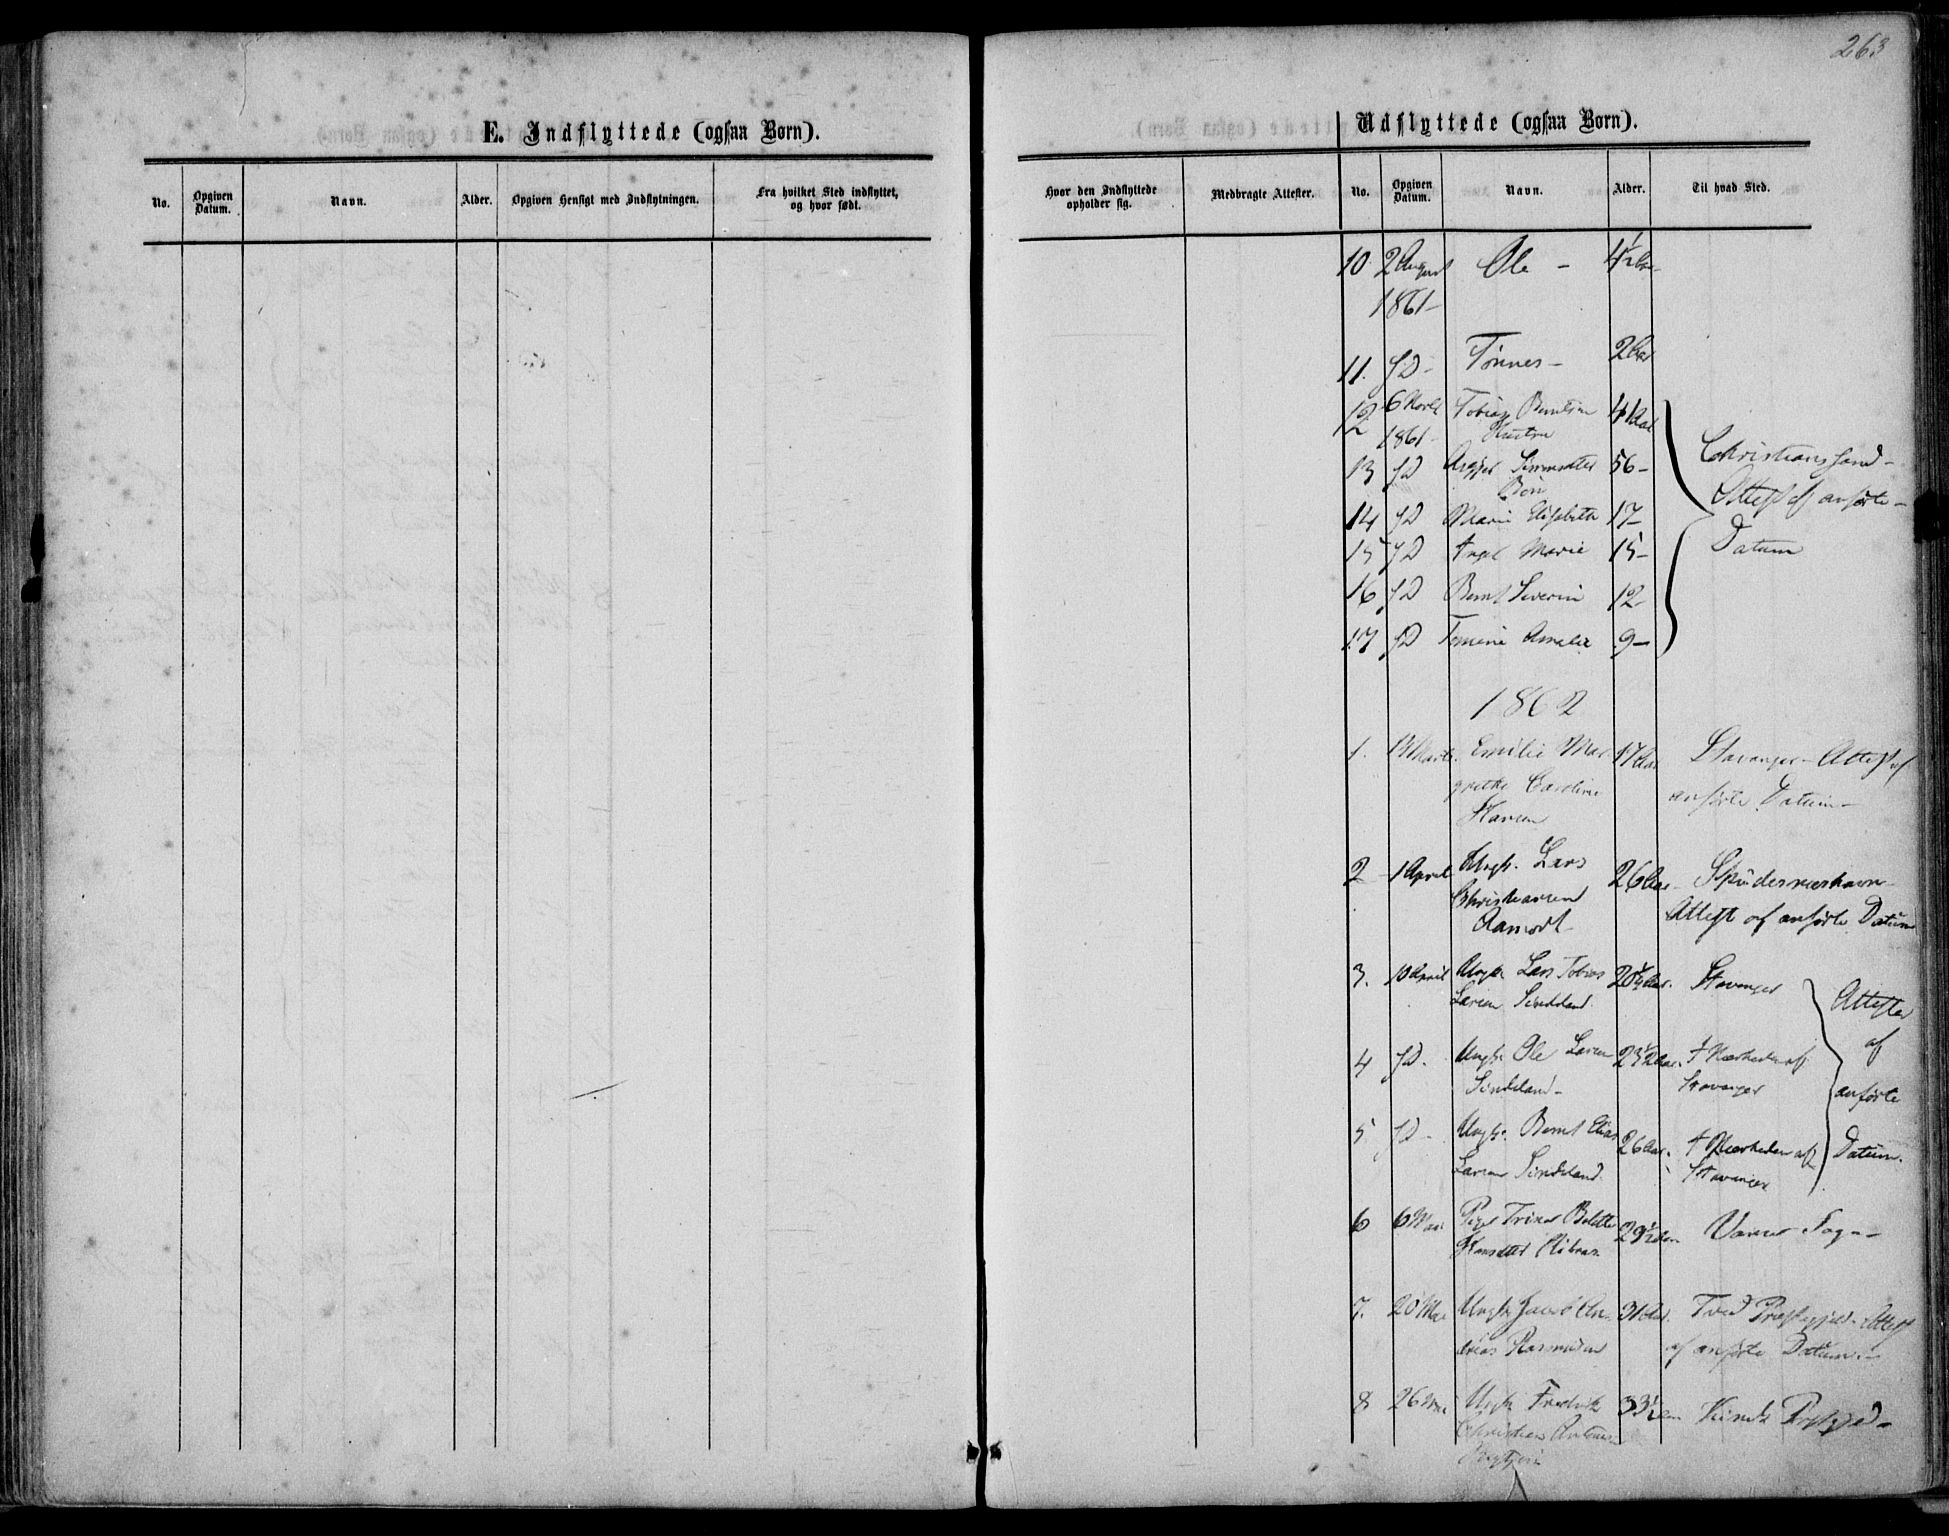 263
E. Indflyttede (ogsaa Børn).
No.
Opgiven Datum.
Navn.
Alder.
Opgiven Hensigt med Indflytningen.
Fra hvilket Sted indflyttet, og hvor født.
Hvor den Indflyttede opholder sig.
Medbragte Attester.
Udflyttede (ogsaa Børn).
No.
Opgiven Datum.
Navn.
Alder.
Til hvad Sted.
10 2 August 1861- Ole - 4½ Aar-
11. JD- Tønnes- 2 Aar
12 6 1861- Tobias Berntsen 41 Aar
Hustru
13 JD 56-
Børn
14 JD Marie Elisabeth 17-
15 JD Marie 15-
16 JD Bernt Severin 12-
17 JD Amalie 9-
Christianssand-
Attest af anførte-
Datum
1862
1. 13 Marts. Emilie Mar
grethe Caroline
Hansen 17 Aar
Stavanger- Attest af
anførte Datum-
2 1 April Ungk. Lars
Christiansen
Aamodt- 26 Aar-
Spudesnæshavn-
Attest af anførte Datum
3. 10 April Ungk. Lars Tobias
Larsen Sindeland. 20½ Aar. Stavanger
4 JD. Ungk. Ole Larsen
Sindeland- 23½ Aar. I Nærheden af
Stavanger
5 JD- Ungk. Bernt Elias
Larsen Sindeland. 26 Aar. I Nærheden af
Stavanger
Attester
af
anførte
Datum.
6 6 Mai Pige Trine Bolette
29½ Aar Sogn-
7. 20 Mai Ungk. Jacob An-
dreas Rasmussen 31 Aar. Tved Præstegjeld- Attest
af anførte Datum.-
8 26 Mai Ungk. Fredrik
Christian
33½ Aar